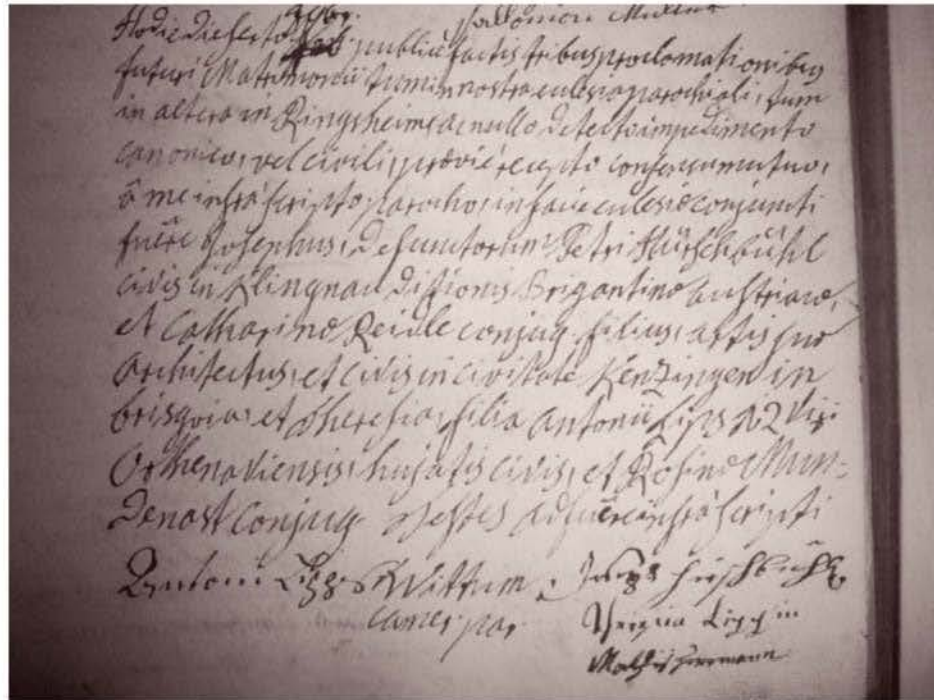 Hodie die sexto 9bris publicè factis tribus proclamationibus
futuri Matrimonii tum in nostra ecclesia parochiali, tum
in altera in Ringsheim, ac nullo detecto impedimento
canonico, vel civili, praeviè recepto consensu mutuo,
à me infrà scripto parocho, in facie ecclesiae conjuncti
fuêre Josephus, defunctorum Petri Hürschbühl
civis in Klingnau ditionis Brigantinae austriacae,
et Catharinae Reidle conjug. filius, artis suae
Architectus, et civis in civitate Kenzingen in
brisgoia, et Theresia, filia Antonii Lips 12 Viri
Orthenaviensis, hujatis civis, et Rosinae Mun=
denast conjug. Testes adfuêre infrà scripti
Antoni Lips Wittum Hirschbühl
camer. par.
Lippin
Mathis Herrmann